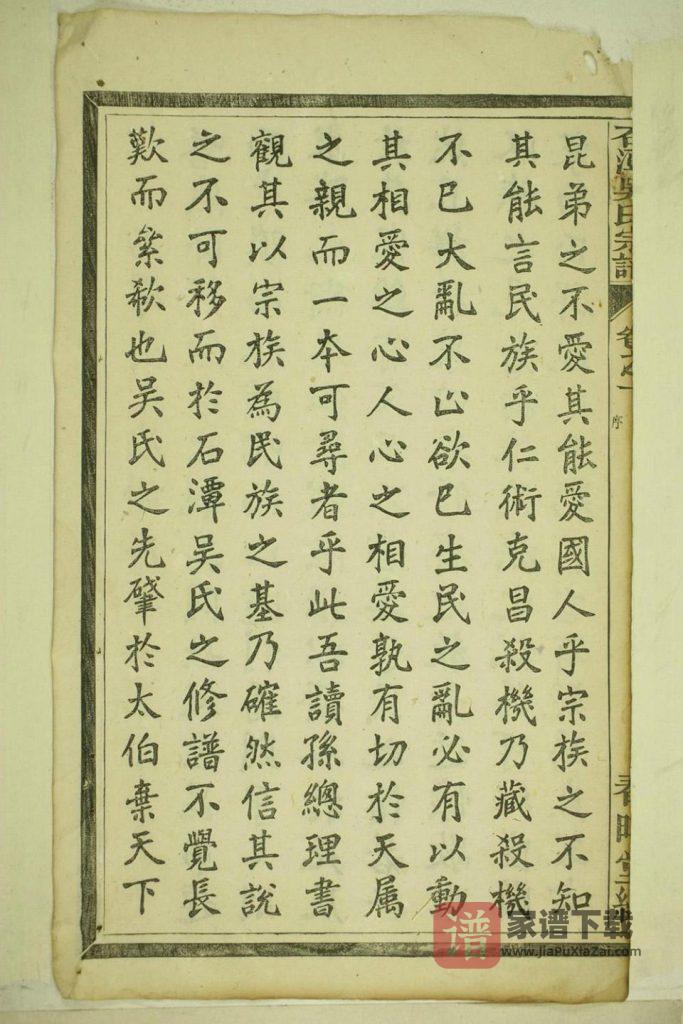 石潭吳氏宗譜
卷之一
序
昆弟之不愛其能愛國人乎宗族之不知
其能言民族乎仁術克昌殺機乃藏殺機
不已大亂不止欲已生民之亂必有以動
其相愛之心人心之相愛孰有切於天属
之親而一本可尋者乎此吾讀孫總理書
觀其以宗族為民族之基乃確然信其說
之不可移而於石潭吳氏之修譜不覺長
歎而縈欷也吳氏之先肇於太伯棄天下
譜
家谱下载
www.JiaPuXiaZai.com